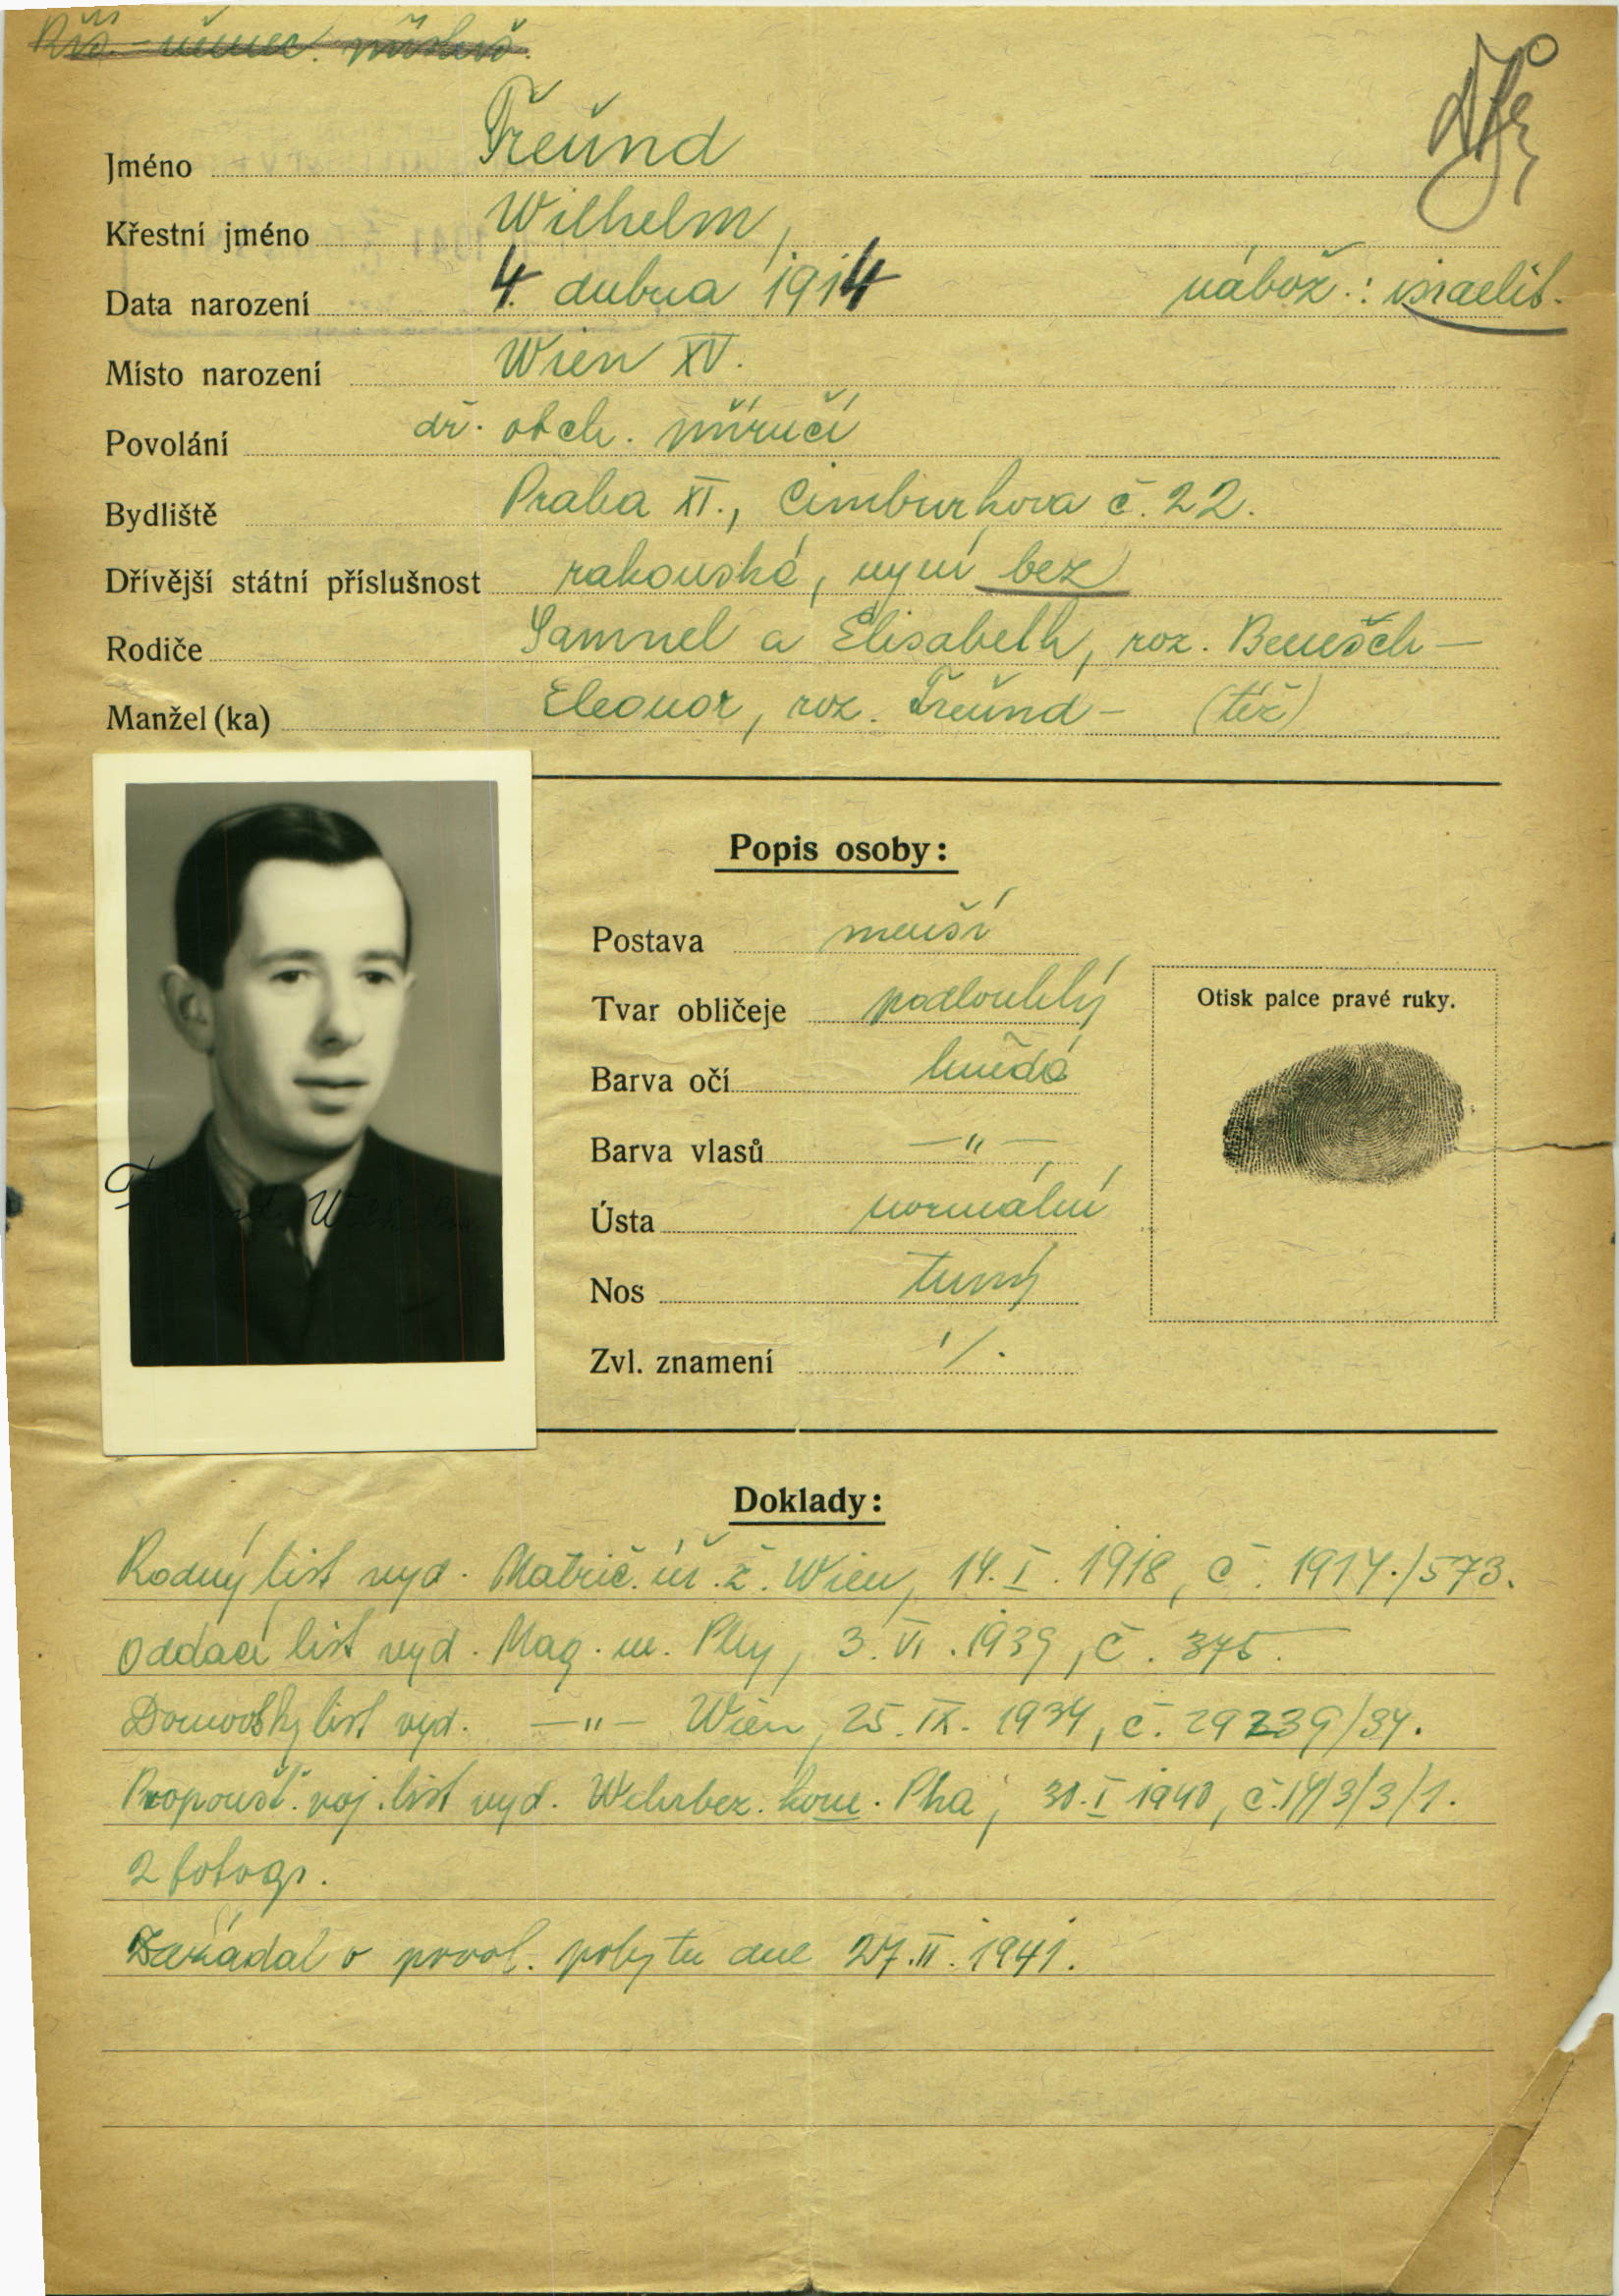 Říš. němec. přísluš.
Jméno Freund
Křestní jméno Wilhelm,
Data narození 4. dubna 1914 nábož.: israelit.
Místo narození Wien XV.
Povolání dř. obch. příručí
Bydliště Praha XI., Cimburkova č. 22.
Dřívější státní příslušnost rakouská, nyní bez
Rodiče Samuel a Elisabeth, roz. Benesch —
Manžel(ka) Eleonor, roz. Freund — (též)
Popis osoby:
Postava menší
Tvar obličeje podlouhlý
Otisk palce pravé ruky.
Barva očí hnědá
Barva vlasů —"—
Ústa normální
Nos tupý
Zvl. znamení ·/·
Doklady:
Rodný list vyd. Matrič. úř. ž. Wien, 14. I. 1918, č. 1914./573.
Oddací list vyd. Mag. m. Phy, 3. VI. 1939, č. 375.
Domovský list vyd. —"— Wien, 25. IX. 1934, č. 29239/34.
Propoušť. voj. list vyd. Wehrbez. kom. Pha, 30. I 1940, č. /3/3/1.
2 fotogr.
Zažádal o povol. pobytu dne 27. II. 1941.